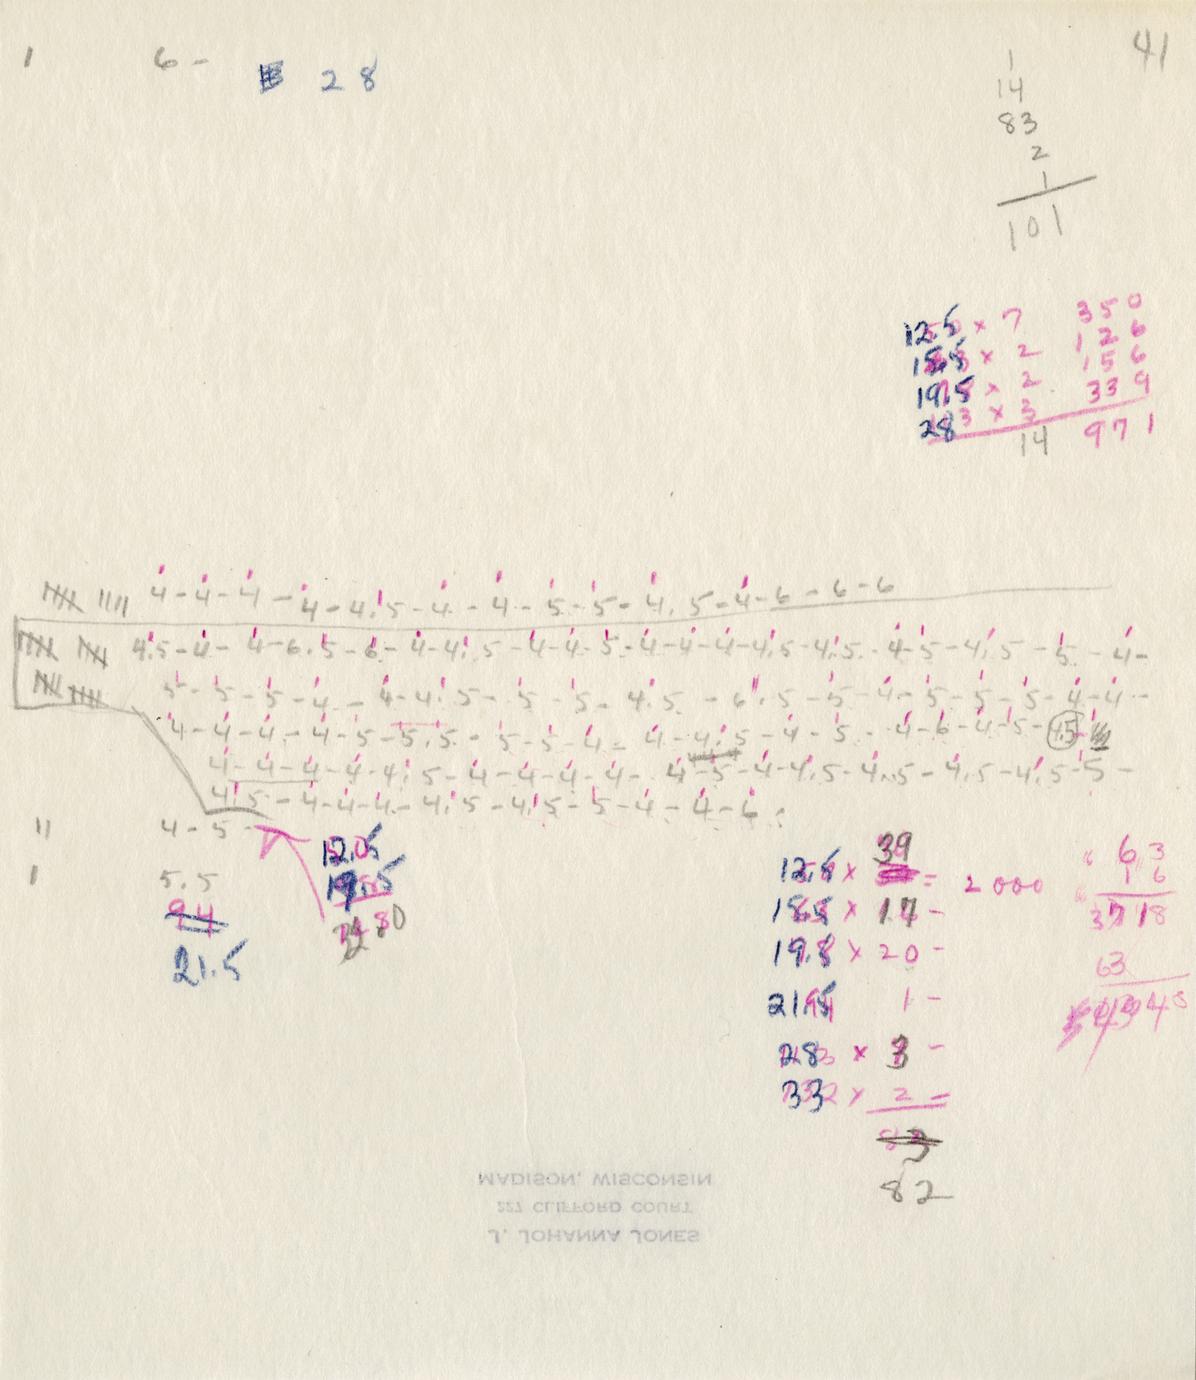 1 6 - 28
41
1
14
83
2
1
101
12.5 × 7 350
× 2 126
19.5 × 2 156
28 × 3 339
14 971
4 - 4 - 4 - 4 - 4.5 - 4 - 4 - 5 - 5 - 4.5 - 4 - 6 - 6 - 6
4.5 - 4 - 4 - 6.5 - 6 - 4 - 4.5 - 4 - 4 - 5 - 4 - 4 - 4 - 4.5 - 4.5 - 4 - 5 - 4.5 - 5 - 4 -
5 - 5 - 5 - 4 - 4 - 4.5 - 5 - 5 - 4.5 - 6.5 - 5 - 4 - 5 - 5 - 5 - 4 - 4 -
4 - 4 - 4 - 4 - 5 - 5.5 - 5 - 5 - 4 - 4 - 4.5 - 4 - 5 - 4 - 6 - 4 - 5 - 4.5
4 - 4 - 4 - 4 - 4.5 - 4 - 4 - 4 - 4 - 4 - 5 - 4 - 4.5 - 4.5 - 4.5 - 4.5 - 5 -
4.5 - 4 - 4 - 4 - 4.5 - 4.5 - 5 - 4 - 4 - 6
11 4 - 5 -
1 5.5
94
21.5
12.5
19.5
12.5 × 39 = 2000
18.5 × 17 -
19.8 × 20 -
21.5 1 -
28 × 3 -
33 × 2 =
83
82
63
16
3718
63
MADISON, WISCONSIN
227 CLIFFORD COURT
J. JOHANNA JONES